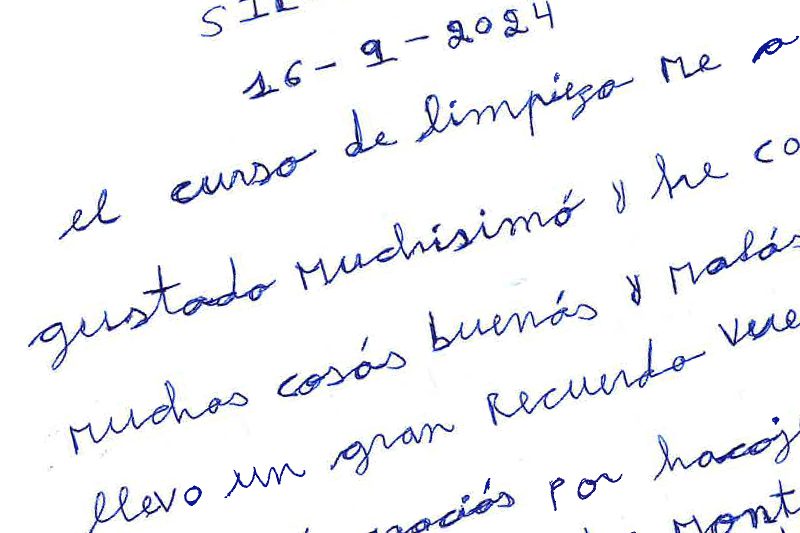 16-9-2024
el curso de limpieza Me a
gustado Muchísimó y he co
Muchas cosás buenás y Malás
llevo un gran Recuerdo
graciós por
Mont